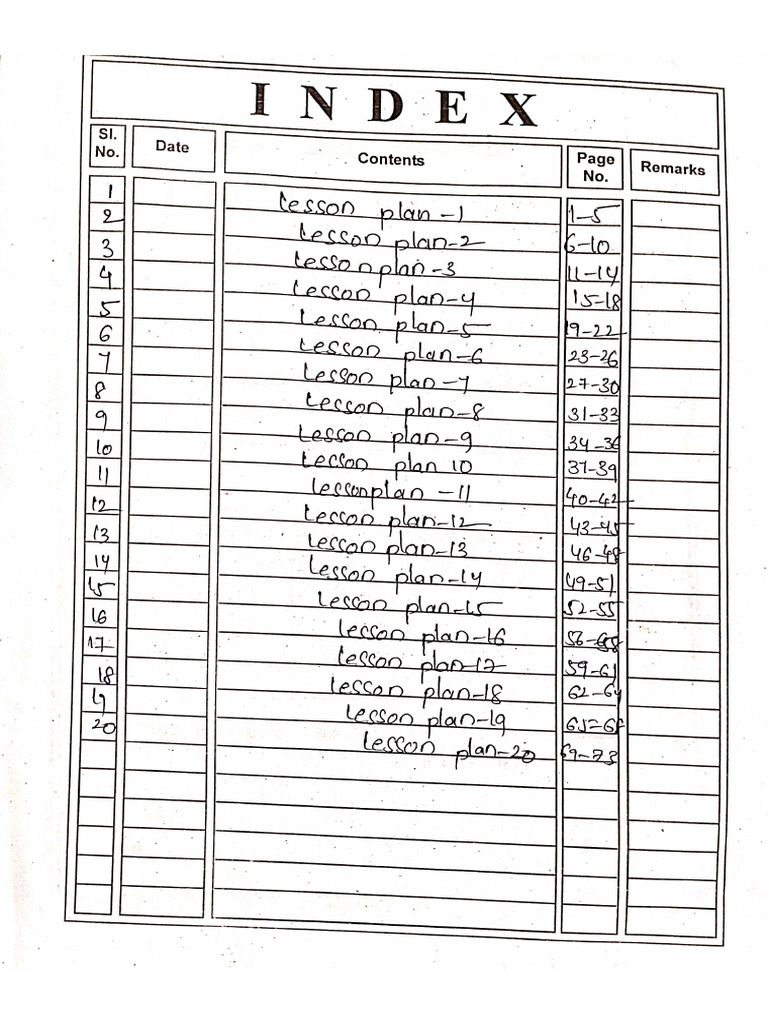 INDEX
Sl. No. Date Contents Page No. Remarks
1 Lesson plan -1 1-5
2 Lesson plan-2 6-10
3 Lesson plan -3 11-14
4 Lesson plan-4 15-18
5 Lesson plan-5 19-22
6 Lesson plan-6 23-26
7 Lesson plan -7 27-30
8 Lesson plan-8 31-33
9 Lesson plan-9 34-36
10 Lesson plan 10 37-39
11 lessonplan -11 40-42
12 Lesson plan-12 43-45
13 Lesson plan-13 46-48
14 Lesson plan-14 49-51
15 Lesson plan-15 52-55
16 Lesson plan-16 56-58
17 Lesson plan-17 59-61
18 Lesson plan-18 62-64
19 Lesson plan-19 65-68
20 Lesson plan-20 69-73